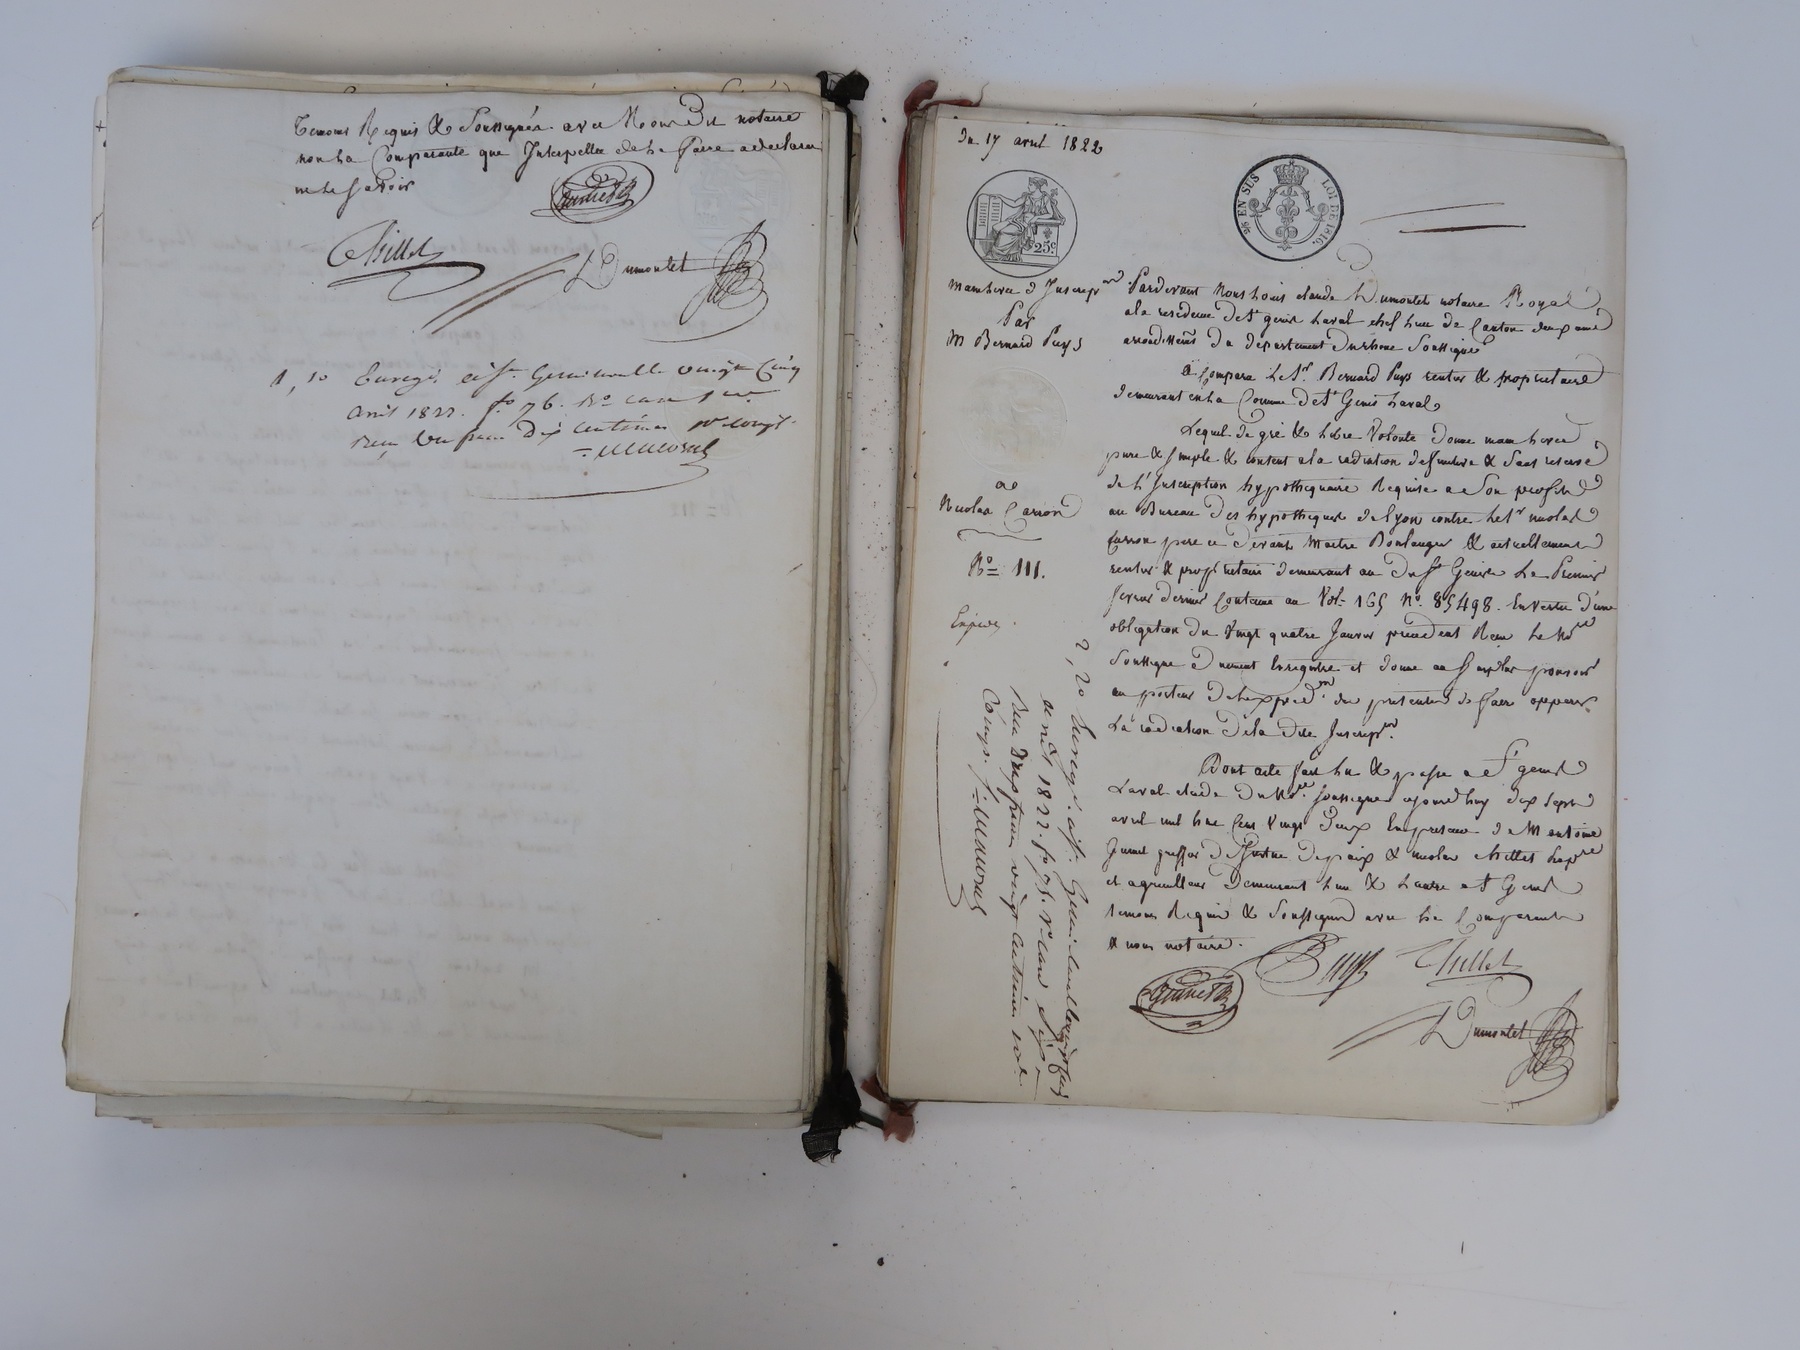 Temoins Requis & Soussignés avec Nous Dit notaire
non la Comparante que Interpellée de le faire a declaré
ne le Savoir
Chillet
L Dumontet
1,10 Enregé à St Genis Laval le vingt Cinq
Avril 1822. fo 76. Ro case
reçu un franc dix centimes
Du 17 avril 1822
25c
25 EN SUS
LOI DE 1816.
Mainlevée d'Inscripon
Par
M Bernard Puys
a
Nicolas Carron
No 111.
Expiée
Pardevant Nous Louis claude Dumontet notaire Royal
a la residence de St genis Laval chef lieu de Canton deuxieme
arrondissemt Du departement Du rhone Soussigné
a Comparu le Sr. Bernard Puys rentier & proprietaire
demeurant en la Commune de St Genis Laval
Lequel de gré & libre Volonté donne main levée
pure & simple & consent a la radiation definitive & sans reserve
de l'Inscription hypothequaire Requise a Son profit
au Bureau des hypotheques de Lyon contre le Sr nicolas
Carron pere ci devant Maitre Boulanger & actuellement
rentier & proprietaire demeurant au Dit St Genis le Premier
fevrier dernier Contenue au Vol. 165 No. 85498. En vertu d'une
obligation du Vingt quatre Janvier précédent Reçu le Nre
Soussigné Duement Enregistré et donne au Surplus pouvoir
au porteur de l'expedon des presentes de faire opperer
La radiation de la dite Inscripon.
Dont acte fait lu & passé a St genis
Laval etude Du Nre. soussigné aujourd'huy dix Sept
avril mil huit Cent Vingt Deux En presence de M antoine
Junet greffier de Justice de paix & nicolas chillet
et agriculteur Demeurant L'un & L'autre a St Genis
temoins Requis & Soussignés avec le Comparant
& nous notaire.
Puys Chillet
L Dumontet
2,20 Enregé à St. Genis Laval le vingt cinq
avril 1822. fo 75. Vo case Six
Reçu Deux francs vingt centimes